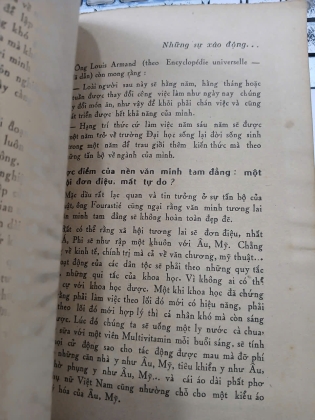 Những sự xáo động...
Ông Louis Armand (theo Encyclopédie universelle —
dẫn) còn mong rằng :
— Loài người sau này sẽ hằng năm, hằng tháng hoặc
tuần được thay đổi công việc làm như ngày nay chúng
đổi món ăn, như vậy để khỏi phải chán việc và cũng
phát triển được hết khả năng của mình.
— Hạng trí thức cứ làm việc năm sáu năm sẽ được
một năm trở về trường Đại học sống lại đời sống sinh
trong một năm để trau giồi thêm kiến thức mà theo
những tấn bộ về ngành của mình.
điểm của nền văn minh tam đẳng : một
hội đơn điệu, mất tự do ?
Mặc dầu rất lạc quan và tin tưởng ở sự tấn bộ của
thuật, ông Fourastié cũng ngại rằng văn minh tương lai
văn minh tam đẳng sẽ không hoàn toàn đẹp đẽ.
Rất có thể rằng xã hội tương lai sẽ đơn điệu, nhất
Á, Phi sẽ như rập một khuôn với Âu, Mỹ. Chẳng
về kinh tế, chính trị mà cả về văn chương, mỹ thuật...
hoạt động của các dân tộc sẽ phải theo những quy tắc
những qui tắc của khoa học. Vì không ai có thể
sự với khoa học được. Một khi khoa học đã chứng
rằng phải làm việc theo lối đó mới có hiệu năng, phải
theo lối đó mới hợp lý thì cá nhân khó mà còn sáng
được. Lúc đó chúng ta sẽ uống một ly nước cà chua
sữa với một viên Multivitamin mỗi buổi sáng, sẽ tính
cử động sao cho tác động được mau mà đỡ phí
những căn nhà y như Âu, Mỹ, tiêu khiển y như Âu,
thờ phụng y như Âu, Mỹ... và cái áo dài phất phơ
nữ Việt Nam cũng nhường chỗ cho một kiểu áo
hóa của Âu, Mỹ.